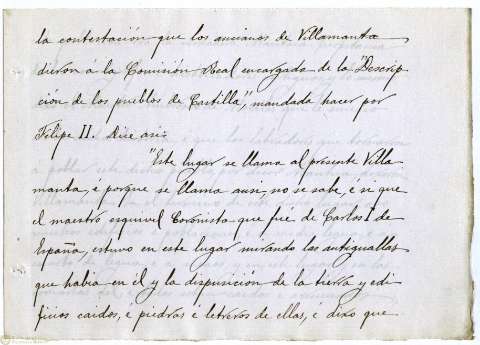 la contestación que los ancianos de Villamanta
dieron á la Comisión Real encargada de la "Descrip
ción de los pueblos de Castilla", mandada hacer por
Felipe II. Dice asi:
"Este lugar se llama al presente Villa
manta, e porque se llama ansi, no se sabe, é si que
el maestro esquivel Coronista que fué de Carlos I de
España, estuvo en este lugar mirando las antiguallas
que habia en él y la disposición de la tierra y edi
ficios caidos, é piedras e letreros de ellas, é dixo que